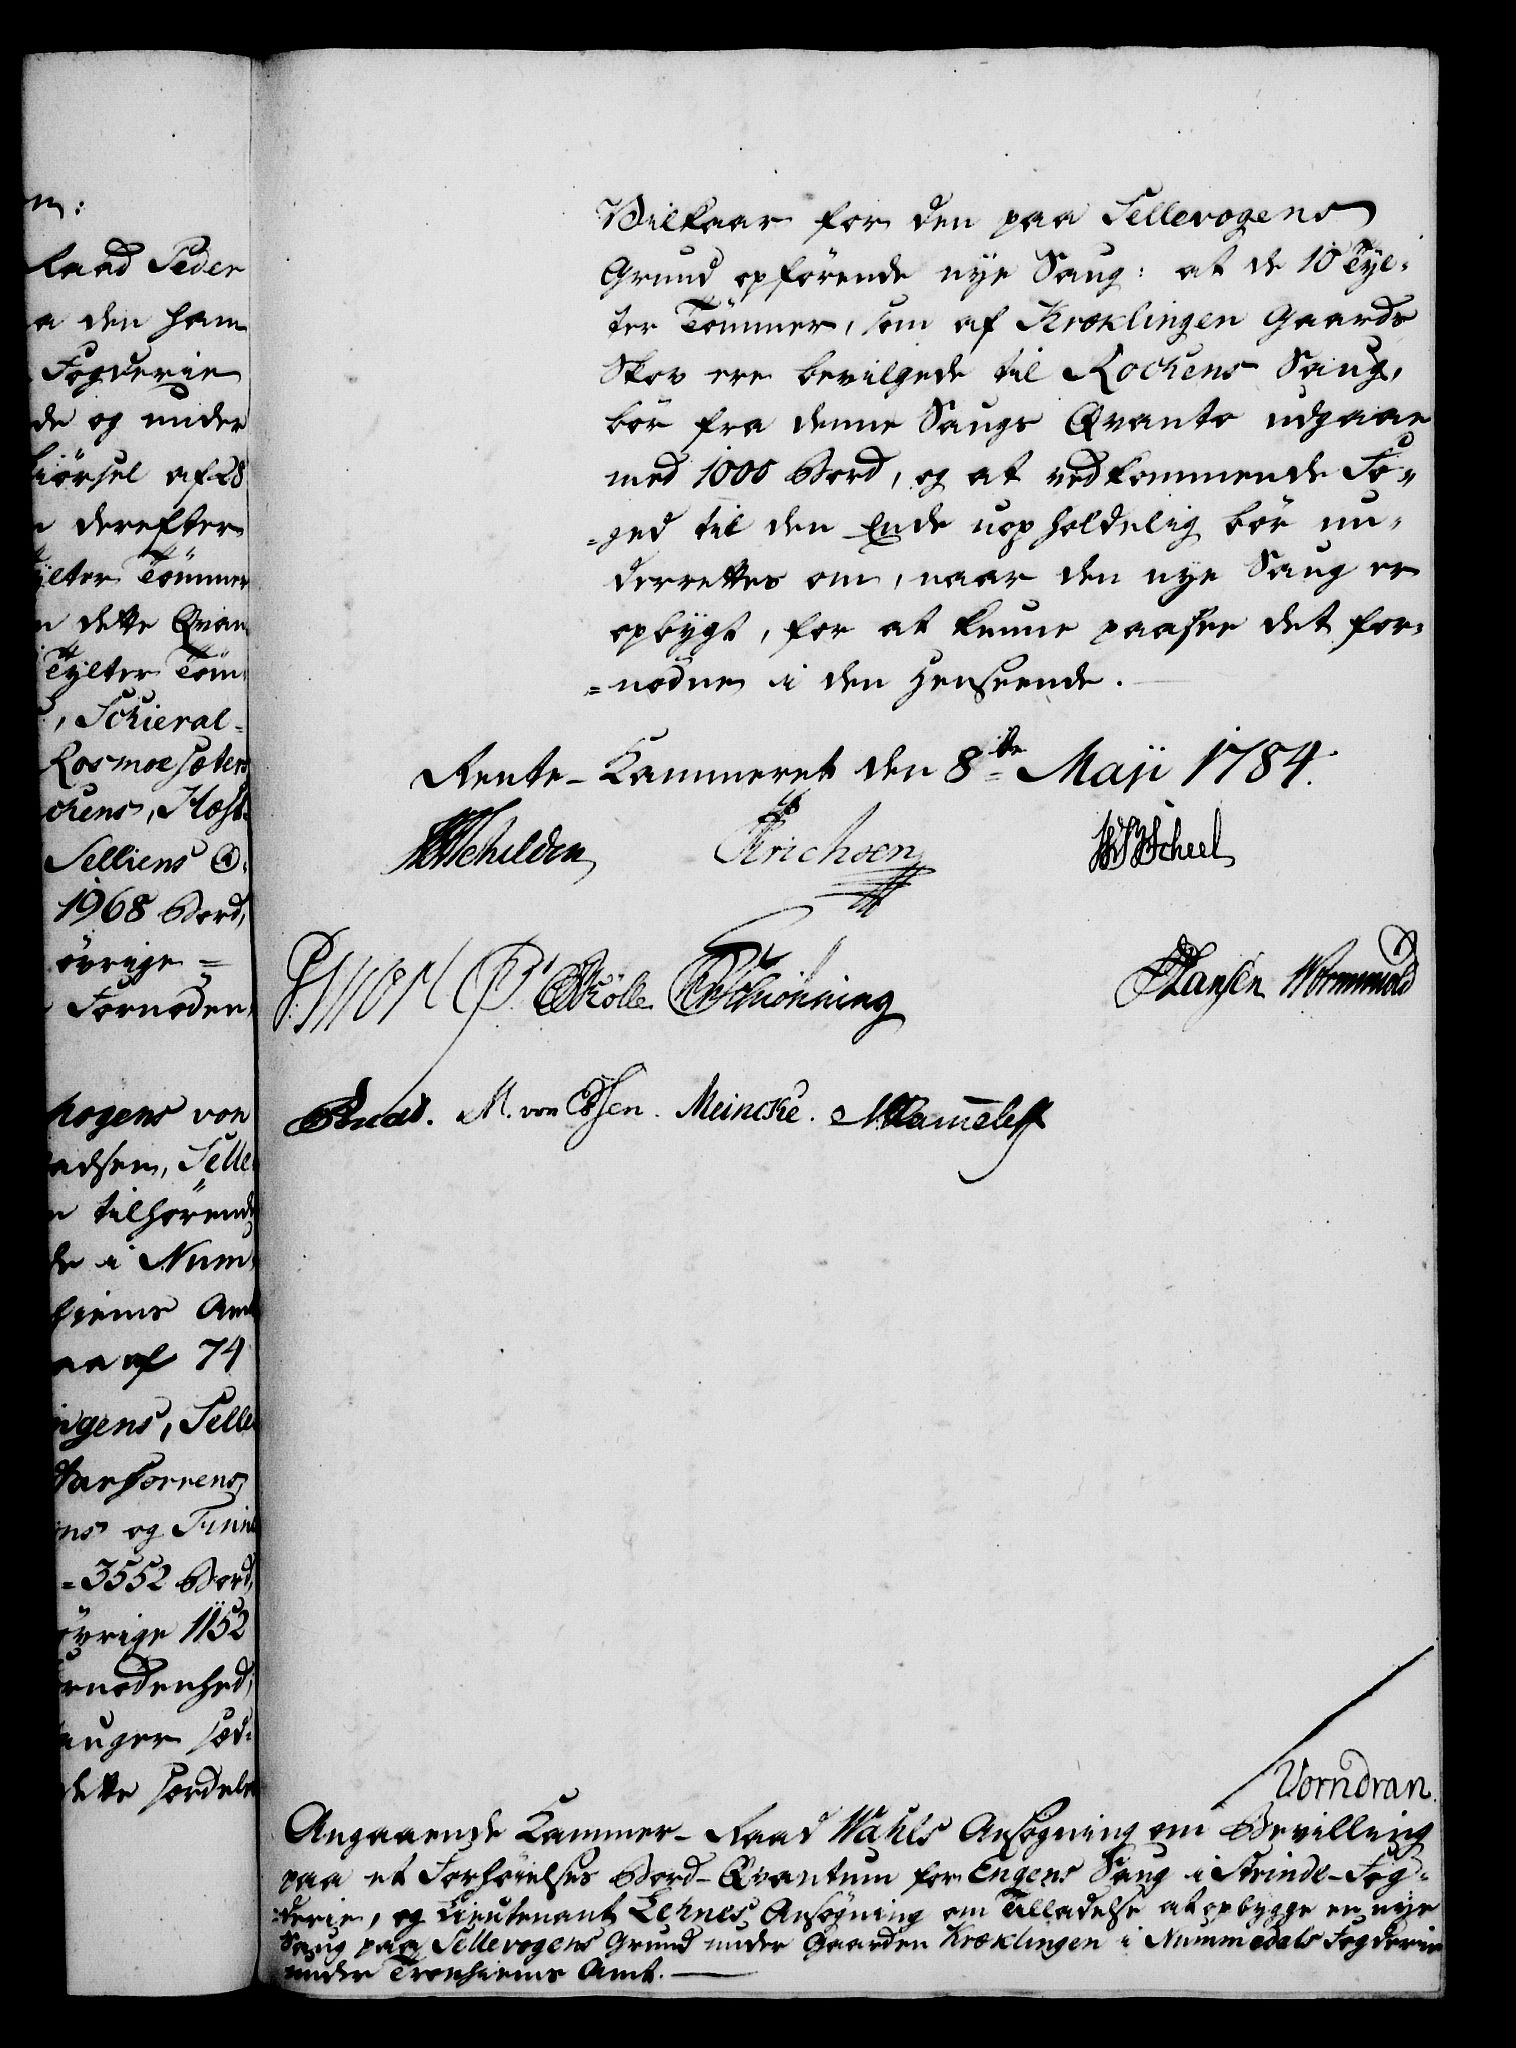 m:
Raad Peder
a den ham
Fogderie
de og under
kiörsel af 28
n derefter
ylter Tömmer
n dette Qvan
Tylter Töm-
, Schieral-
Rosmoesæters
ckens, Høst-
Selliens
1968 Bord,
övrige =
Fornøden
Mogens von
adsen, Selle
n tilhörende
de i Num-
hiems Amt
aa af 74
ingens, Selle
ens og Finne
= 3552 Bord,
övrige 1152
ornødenhed,
auger sæd-
dette særdeles
Vilkaar for den paa Sellevogens
Grund opförende nye Saug: at de 10 Tyl-
ter Tömmer, som af Kræklingen Gaards
Skov ere bevilgede til Rockens Saug,
bör fra denne Saugs Qvanto udgaae
med 1000 Bord, og at vedkommende Fo-
=ged til den Ende uopholdelig bör un-
derrettes om, naar den nye Saug er
opbygt, for at kunne paasee det for-
=nødne i den Henseende.
Rente-Kammeret den 8de Maji 1784.
Mehlden Erichsen Scheel
Rölle Schiönning Hansen Wormwold
Knad. M. von Essen. Meincke. Mammelef
Vorndran.
Angaaende Kammer-Raad Wahls Ansögning om Bevilling
paa et Forhöielses Bord-Qvantum for Engens Saug i Strinde-Fog-
=derie, og Lieutenant Lehnes Ansögning om Tilladelse at opbygge en nye
Saug paa Sellevogens Grund under Gaarden Kræklingen i Nummedals Fogderie
under Tronhiems Amt.